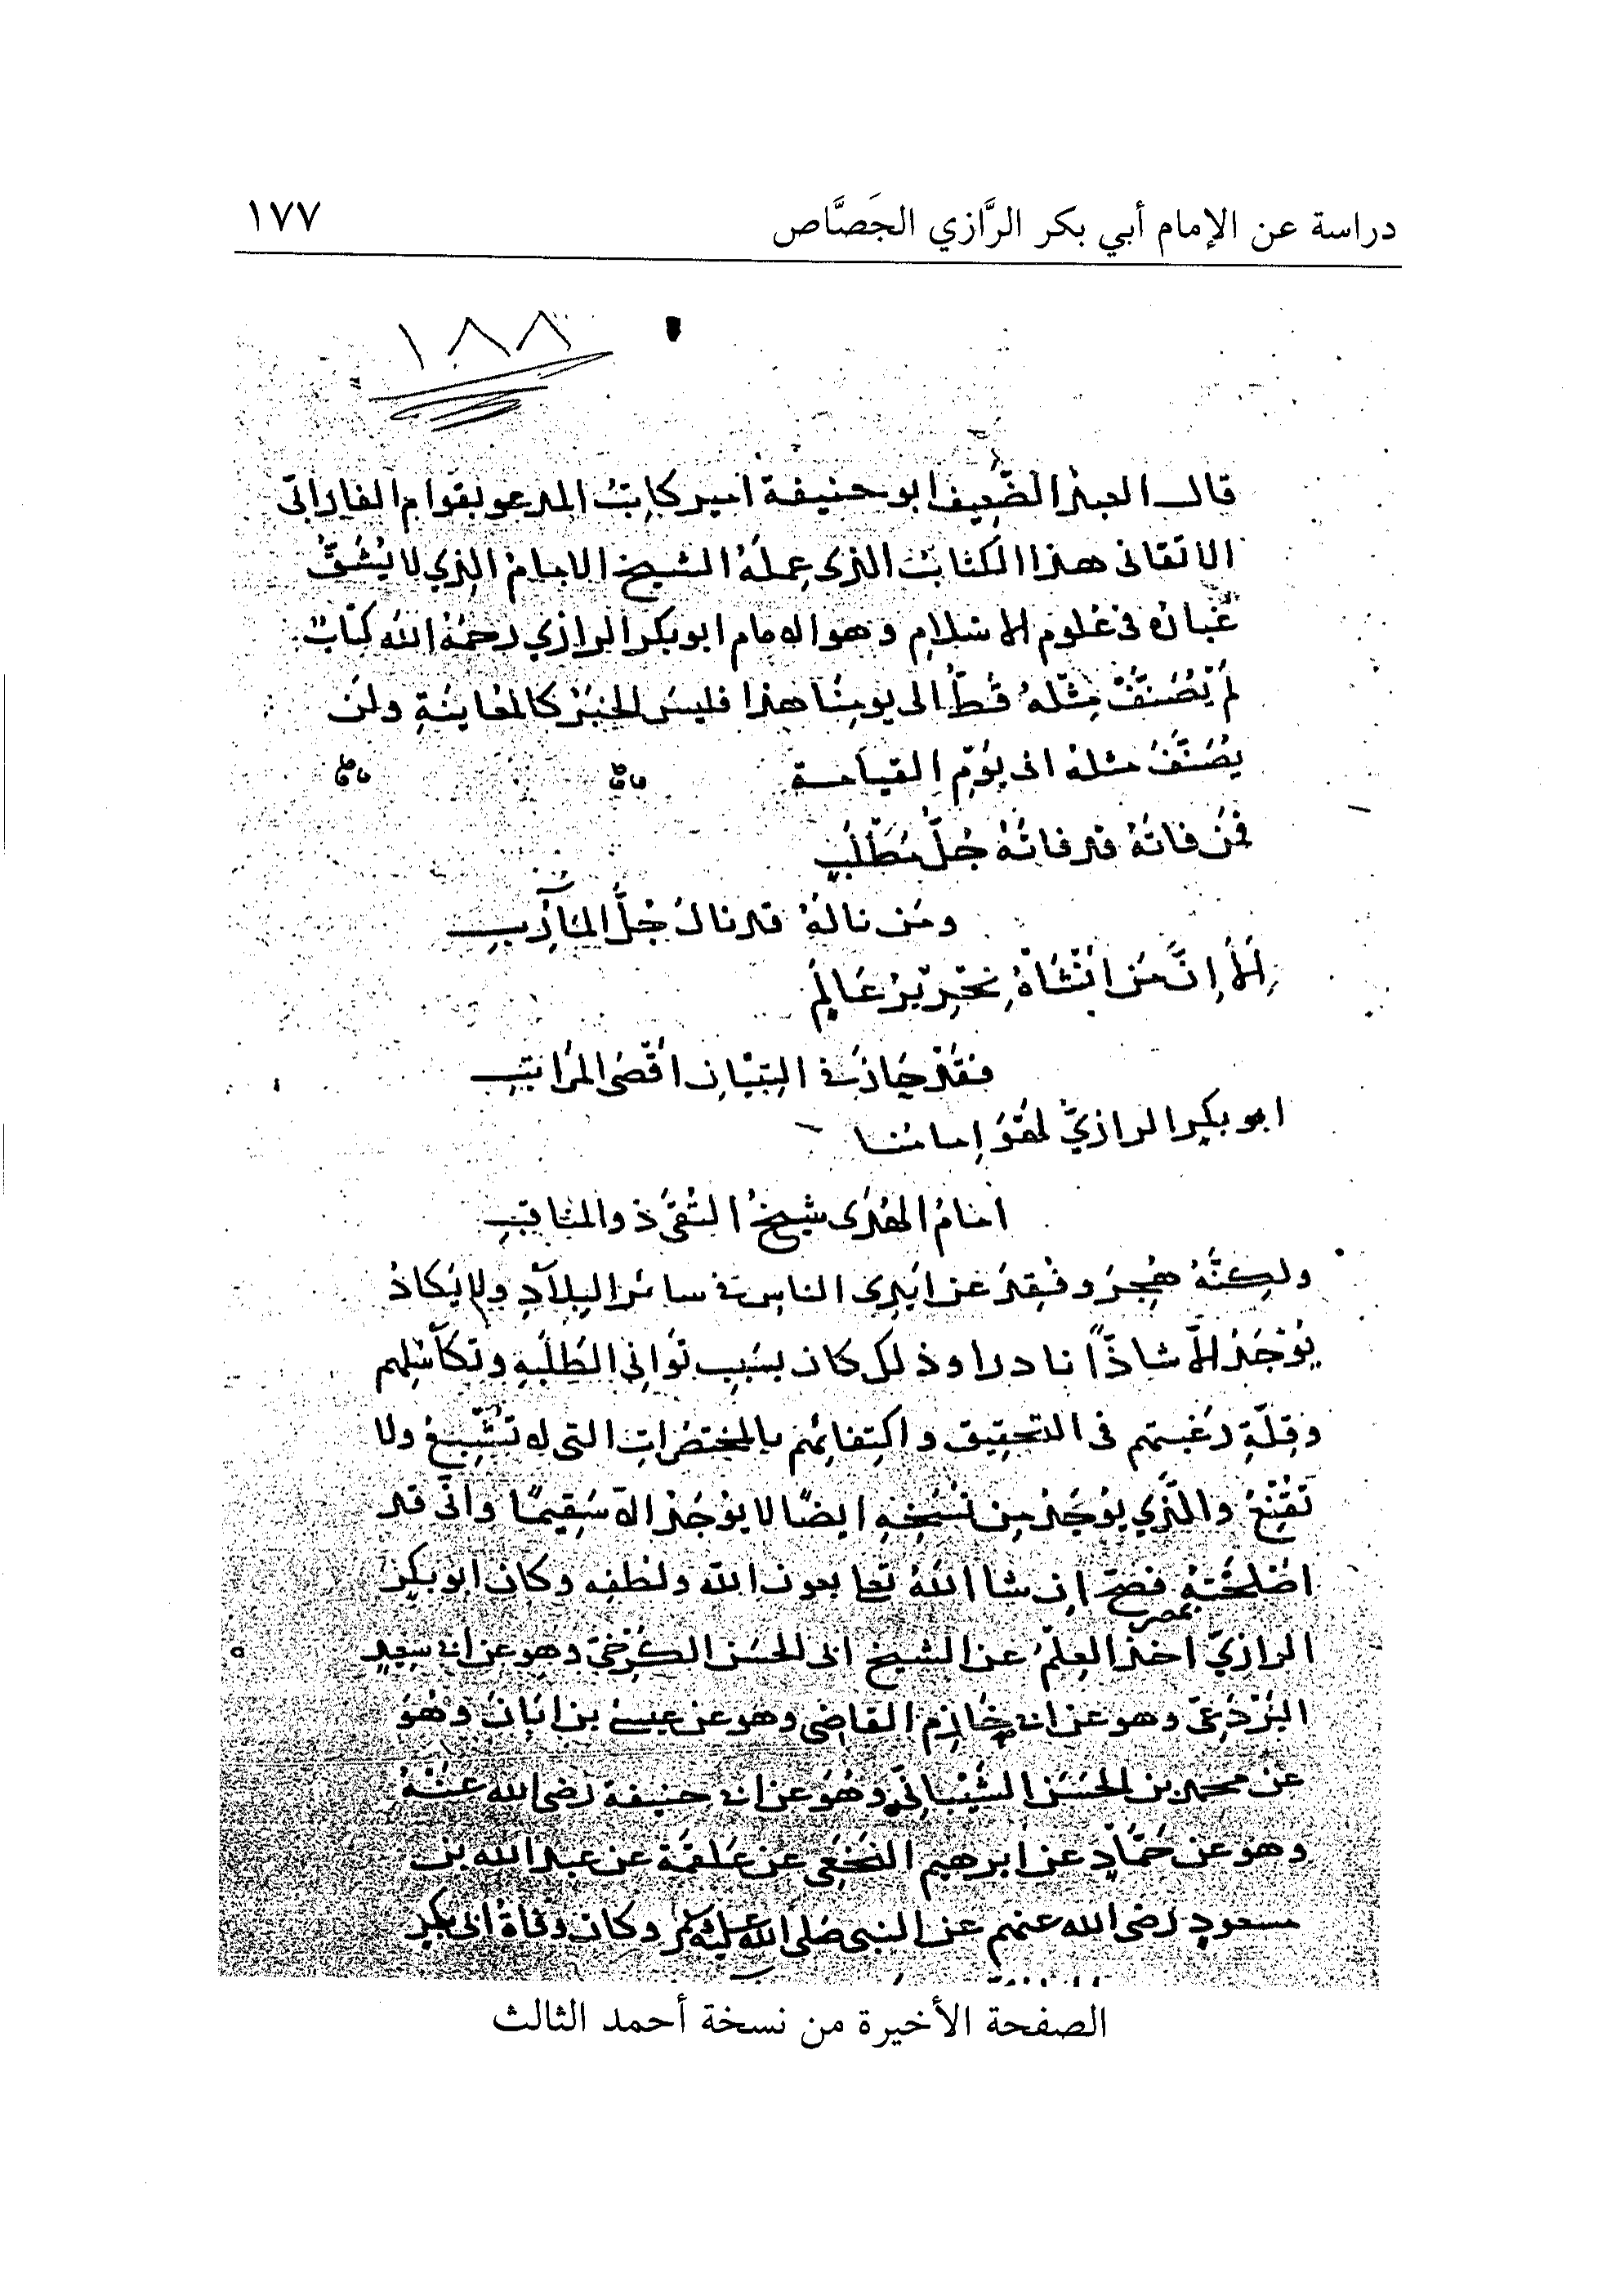 دراسة عن الإمام أبي بكر الرَّازي الجَصَّاص
١٧٧
١٨٨
قال العبد الضَّعيف ابو حنيفة امير كاتب المدعو بقوام الفارابى
الاتقانى هذا الكتاب الذى عمله الشيخ الامام الذي لا يُشَقُّ
غُبَارُه فى عُلوم الاسلام وهو الامام ابو بكر الرازي رحمة الله كتابٌ
لم يُصَنَّفْ مِثْله قَطُّ الى يومنا هذا فليس الخبر كالمعاينة ولن
يُصَنَّفَ مثله الى يوْم القيامة
فمن فاته قد فاتهُ جُلُّ مَطْلَبٍ
ومن ناله قد نال جُلَّ المآرب
الا إنَّ من انْشَاهُ نِحْرِيرُ عَالِم
فقد حاز فى التبيان اقْصَى المراتب
ابو بكر الرازيّ لهْوَ إمامنا
امام الهدى شيخ التُّقَى ذو المناقب
ولكنَّه هُجِرَ وفُقِدَ عن ايدى الناس فى سائر البِلاد ولا يكادُ
يُوْجَدُ الا شاذًّا نادرا وذلك كان بسَبب تَوَانِى الطَّلَبة وتكاسُلهم
وقِلَّةِ رَغبتهم فى التحقيق واكتفائهم بالمختصَرات التى لا تُشْبِعُ ولا
تُقْنِعُ والَّذي يُوْجَدُ مِن نُسْخِهِ ايضًا لا يُوْجَدُ الا سَقِيمًا وانى قد
اصْلَحْتُهُ بمصر فصحّ إن شا الله تعا بعون الله ولُطفه وكان ابو بكر
الرازيّ اخذ العِلْمَ عن الشيخ ابى الحسَن الكَرْخىّ وهو عن ابى سعيد
البَرْدَعِىّ وهو عن ابى خازم القاضى وهو عن عيسى بن ابان وهُوَ
عن محمد بن الحسَن الشَّيْبانِّى وهُوَ عن ابى حنيفة رضى الله عنه
وهو عن حمَّادٍ عن ابرهيم النَّخَعِى عن علقمة عن عبد الله بن
مسعودٍ رضى الله عنهم عن النبى صلى الله عليه وسلم وكان وفاة ابى بكر
الصفحة الأخيرة من نسخة أحمد الثالث